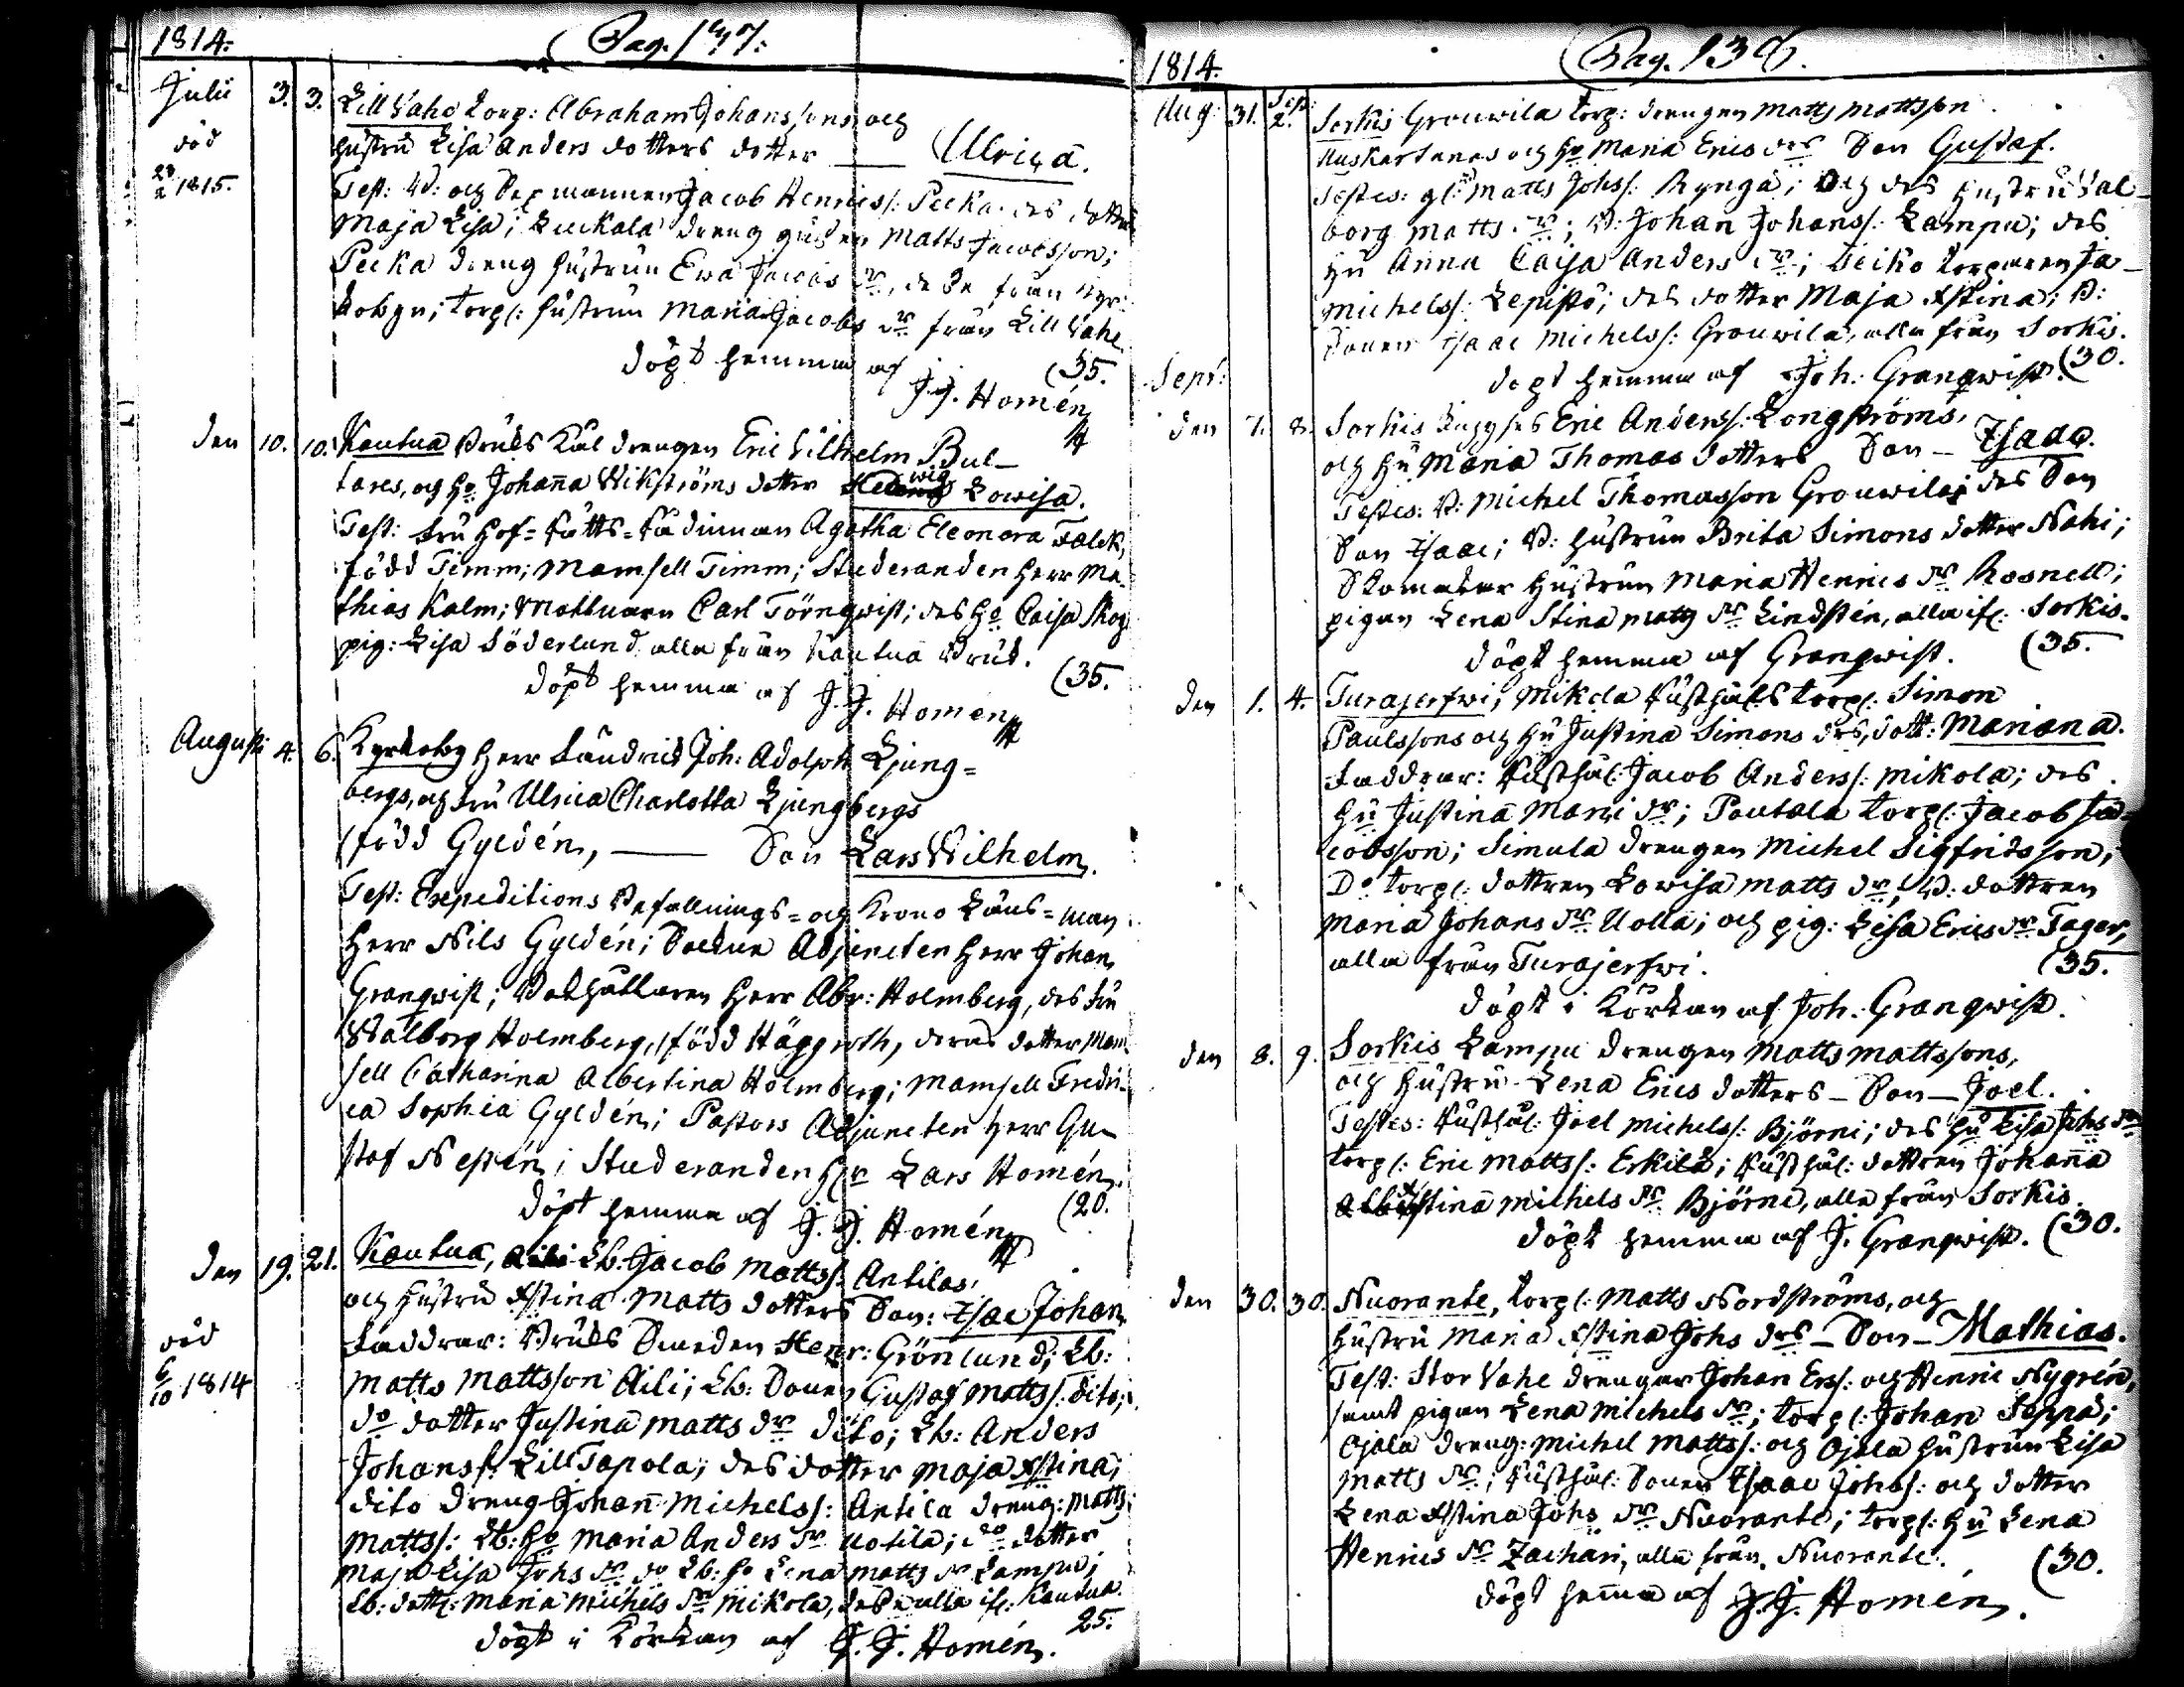 1814.
Pag. 137.
Julii 3. 3. Lill Vahe torp: Abraham Johanssons och
död hustru Lisa Anders dotters dotter — Ulrica.
28/2 1815.
Test: B: och Sex mannen Jacob Henrics/: Pecka. des dotter
Maja Lisa; Luckala dreng gåssen Matts Jacobsson;
Pecka dreng hustrun Eva Jacobs dr, desse från Kyr-
kobyn; torp/: hustrun Maria Jacobs dr från Lill Vahe
döpt hemma af (35.
J. J. Homén
den 10. 10. Kautua Bruks Kål drengen Eric Vilhelm Bul-
lares, och ho Johanna Wikströms dotter Hedwig Lowisa.
Test: Fru Hof-Rätts-Rådinnan Agatha Eleonora Falck,
född Timm; Mamsell Timm; Studeranden Herr Ma-
thias Kalm; Mottuarn Carl Törnqwist; des ho Caisa Skog
pig: Lisa Söderlund alla från Kautua Bruk.
döpt hemma af J. J. Homén (35.
Augusti 4. 6. Kyrkoby Herr Landrich Joh: Adolph Ljung=
bergs, och Fru Ulrica Charlotta Ljungbergs
född Gyldén, — Son Lars Wilhelm.
Test: Expeditions Befallnings= och Krono Läns=man
Herr Nils Gyldén; Sockne Adjuncten Herr Johan
Granqwist; Bokhållaren Herr Abr: Holmberg, des Fru
Walborg Holmberg, född Häggroth, deras dotter Mam-
sell Catharina Albertina Holmberg; Mamsell Fredri-
ca Sophia Gyldén; Pastors Adjuncten Herr Gu-
staf Nestén; Studeranden Hr Lars Homén.
döpt hemma af J. J. Homén (20.
den 19. 21. Kautua, Aili Lb: Jacob Matts/: Antilas,
och hustru Xstina Matts dotters Son: Isac Johan
död Faddrar: Bruks Smeden Henr: Grönlund; Lb:
6/10 1814 Matts Mattsson Aili; Lb: Sonen Gustaf Matts/: dito;
do dotter Justina Matts dr dito; Lb: Anders
Johans/: Lill Tapola; des dotter Maja Xstina;
dito dreng Johan Michels/: Antila dreng: Matts
Matts/: Lb: ho Maria Anders dr Uotila; do dotter
Maja Lisa Johs dr do Lb: ho Lena Matts dr Lampu;
Lb: dott/: Maria Michels dr Mikola, desse alla if/: Kautua
döpt i Körkan af J. J. Homén. 25.
1814.
Pag. 138.
Aug: 31. Sept: 2. Sorkis Grouwila torp: drengen Matts Mattsson
Uuskartanos och ho Maria Erics drs Son Gustaf.
Testes: Matts Johs/: Rynga; och des hustru Val-
borg Matts dr; B: Johan Johans/: Lampu; des
hu Anna Caisa Anders dr; Seiko torparen Ja-
Michels/: Lepistö; des dotter Maja Xstina; B:
Sonen Isaac Michels/: Grouwila, alla från Sorkis.
Sept: döpt hemma af Joh: Granqwist. (30.
den 7. 8. Sorkis Eric Anders/: Longströms,
och hu Maria Thomas dotters Son — Isaac.
Testes: B: Michel Thomasson Grouwila; des Son
Son Isaac; B: hustrun Brita Simons dotter Nohi;
Skomakar hustrun Maria Henrics dr Rosnell;
pigan Lena Stina Matts dr Lindstén, alla if/: Sorkis.
döpt hemma af Granqwist. (35.
den 1. 4. Turajerfwi, Mikola Rusthåls torp/: Simon
Paulssons och hu Justina Simons drs, dott: Mariana.
Faddrar: Rusthål: Jacob Anders/: Mikola; des
hu Justina Mari dr; Pautola torp/: Jacob Ja-
cobsson; Simula drengen Michel Sigfridsson;
Do torp/: dottren Lowisa Matts dr; B: dottren
Maria Johans dr Uolla; och pig: Lisa Erics dr Tager,
alla från Turajerfwi. (35.
döpt i Körkan af Joh. Granqwist.
den 8. 9. Sorkis Lampu drengen Matts Mattssons,
och hustru Lena Erics dotters — Son — Joel.
Testes: Rusthål: Joel Michels/: Björni; des hu Lisa Johs dr
torp/: Eric Matts/: Erkilä; Rusthål: dottren Johanna
Xstina Michels dr Björni, alla från Sorkis.
döpt hemma af J. Granqwist. (30.
den 30. 30. Nuorante, torp/: Matts Nordströms, och
hustru Maria Xstina Johs drs — Son — Mathias.
Test: Stor Vahe drengar Johan Ers/: och Henric Nygrén,
samt pigan Lena Michels dr; torp/: Johan Seppä;
Ojala dreng: Michel Matts/: och Ojala hustrun Lisa
Matts dr; Rusthål: Sonen Isaac Johs/: och dotter
Lena Xstina Johs dr Nuorante; torp/: hu Lena
Henrics dr Zachari, alla från Nuorante. (30.
döpt hema af J. J. Homén.